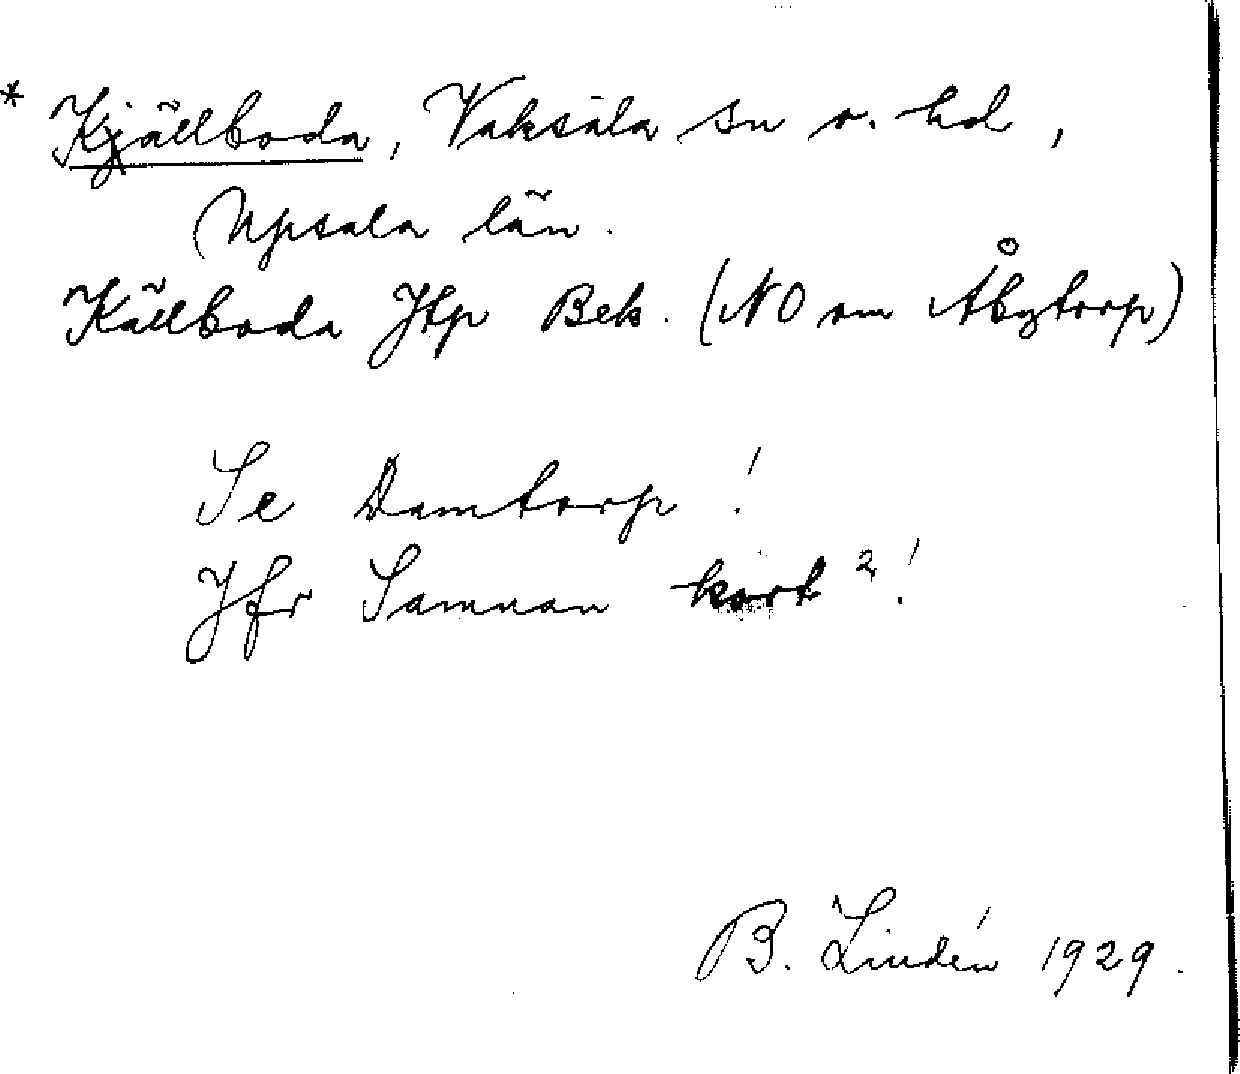 * Kjällboda, Vaksala sn o. hd,
Upsala län.
Källboda Jtp Bek. (NO om Åbytorp)
Se Damtorp!
Jfr Samnan kort 2!
B. Lindén 1929.